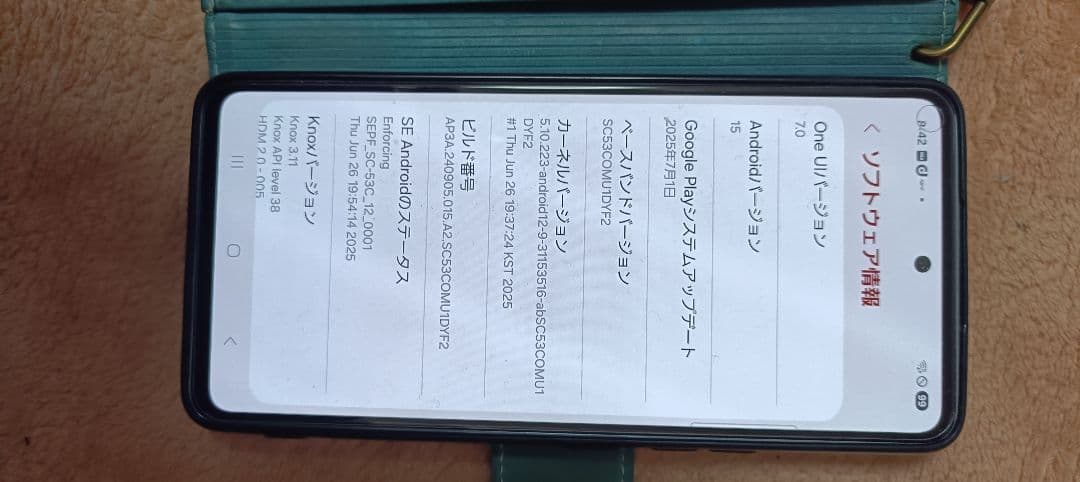 8:42
99
ソフトウェア情報
One UIバージョン
7.0
Androidバージョン
15
Google Playシステムアップデート
2025年7月1日
ベースバンドバージョン
SC53COMU1DYF2
カーネルバージョン
5.10.223-android12-9-31153516-abSC53COMU1
DYF2
#1 Thu Jun 26 19:37:24 KST 2025
ビルド番号
AP3A.240905.015.A2.SC53COMU1DYF2
SE Androidのステータス
Enforcing
SEPF_SC-53C_12_0001
Thu Jun 26 19:54:14 2025
Knoxバージョン
Knox 3.11
Knox API level 38
HDM 2.0 - 005